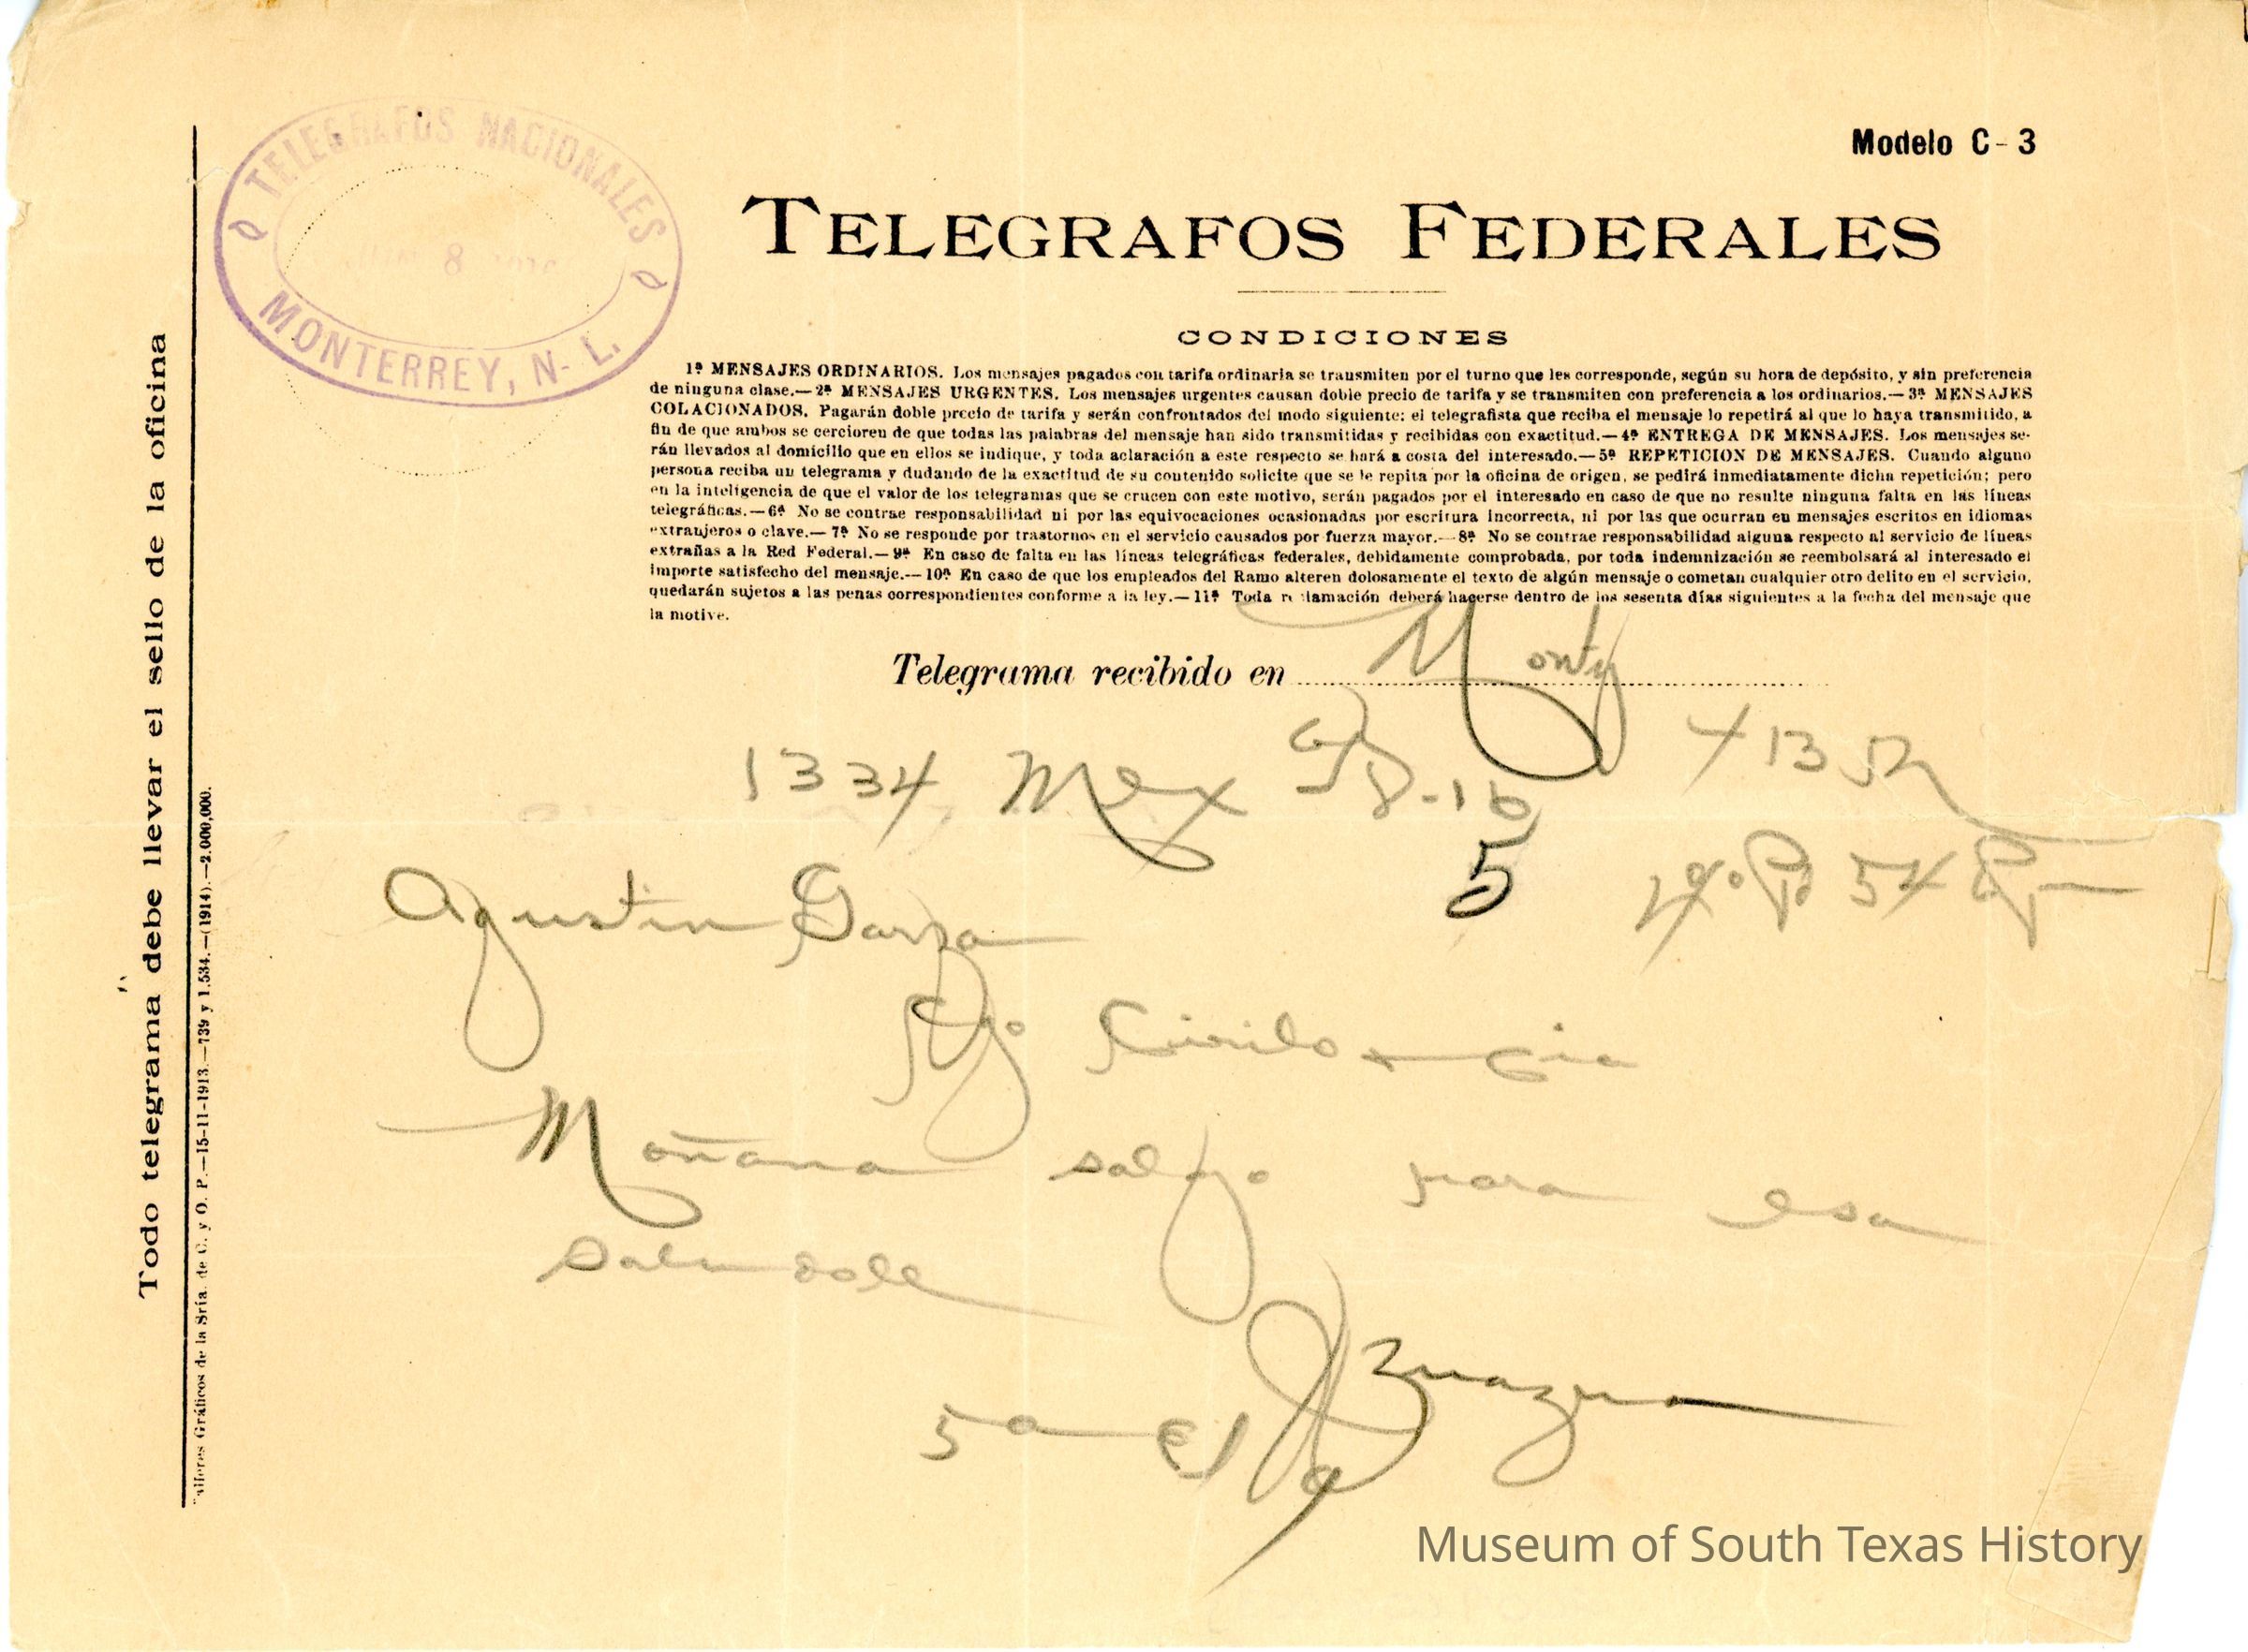 Modelo C-3
TELEGRAFOS NACIONALES
8
MONTERREY, N-L.
TELEGRAFOS FEDERALES
CONDICIONES
1ª MENSAJES ORDINARIOS. Los mensajes pagados con tarifa ordinaria se transmiten por el turno que les corresponde, según su hora de depósito, y sin preferencia
de ninguna clase.—2ª MENSAJES URGENTES. Los mensajes urgentes causan doble precio de tarifa y se transmiten con preferencia a los ordinarios.—3ª MENSAJES
COLACIONADOS. Pagarán doble precio de tarifa y serán confrontados del modo siguiente: el telegrafista que reciba el mensaje lo repetirá al que lo haya transmitido, a
fin de que ambos se cercioren de que todas las palabras del mensaje han sido transmitidas y recibidas con exactitud.—4ª ENTREGA DE MENSAJES. Los mensajes se-
rán llevados al domicilio que en ellos se indique, y toda aclaración a este respecto se hará a costa del interesado.—5ª REPETICION DE MENSAJES. Cuando alguno
persona reciba un telegrama y dudando de la exactitud de su contenido solicite que se le repita por la oficina de origen, se pedirá inmediatamente dicha repetición; pero
en la inteligencia de que el valor de los telegramas que se crucen con este motivo, serán pagados por el interesado en caso de que no resulte ninguna falta en las líneas
telegráficas.—6ª No se contrae responsabilidad ni por las equivocaciones ocasionadas por escritura incorrecta, ni por las que ocurran en mensajes escritos en idiomas
extranjeros o clave.—7ª No se responde por trastornos en el servicio causados por fuerza mayor.—8ª No se contrae responsabilidad alguna respecto al servicio de líneas
extrañas a la Red Federal.—9ª En caso de falta en las líneas telegráficas federales, debidamente comprobada, por toda indemnización se reembolsará al interesado el
importe satisfecho del mensaje.—10ª En caso de que los empleados del Ramo alteren dolosamente el texto de algún mensaje o cometan cualquier otro delito en el servicio,
quedarán sujetos a las penas correspondientes conforme a la ley.—11ª Toda reclamación deberá hacerse dentro de los sesenta días siguientes a la fecha del mensaje que
la motive.
Telegrama recibido en Monty
1334 Mex 8-16 413
5 54
Agustin Garza
Cirilo
Mañana salgo para esa
Saludole
Zuazua
5a
Todo telegrama debe llevar el sello de la oficina
Talleres Gráficos de la Sría. de C. y O. P.—15-11-1913.—739 y 1.534.—(1914).—2.000,000.
Museum of South Texas History